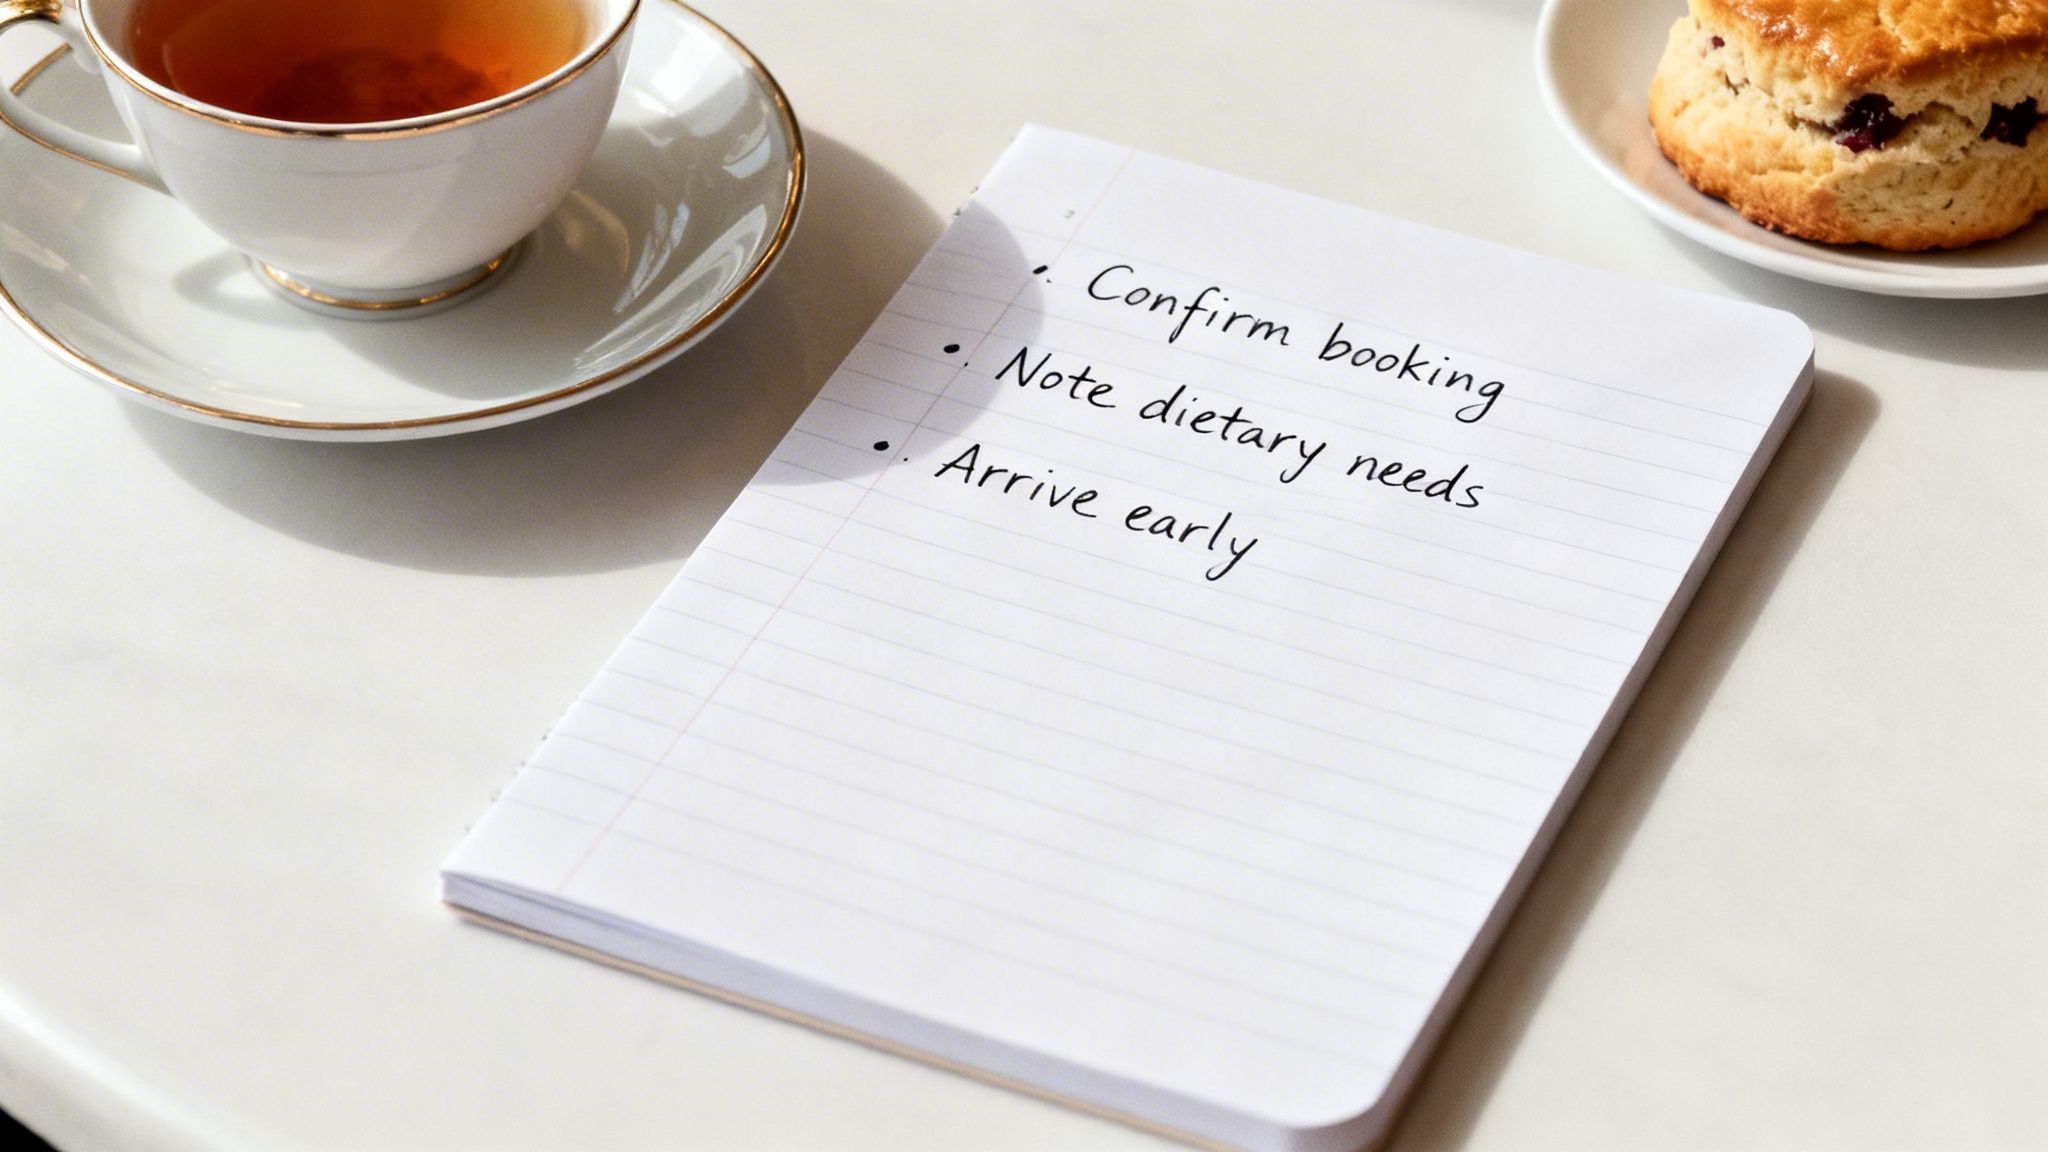 • Confirm booking
• Note dietary needs
• Arrive early